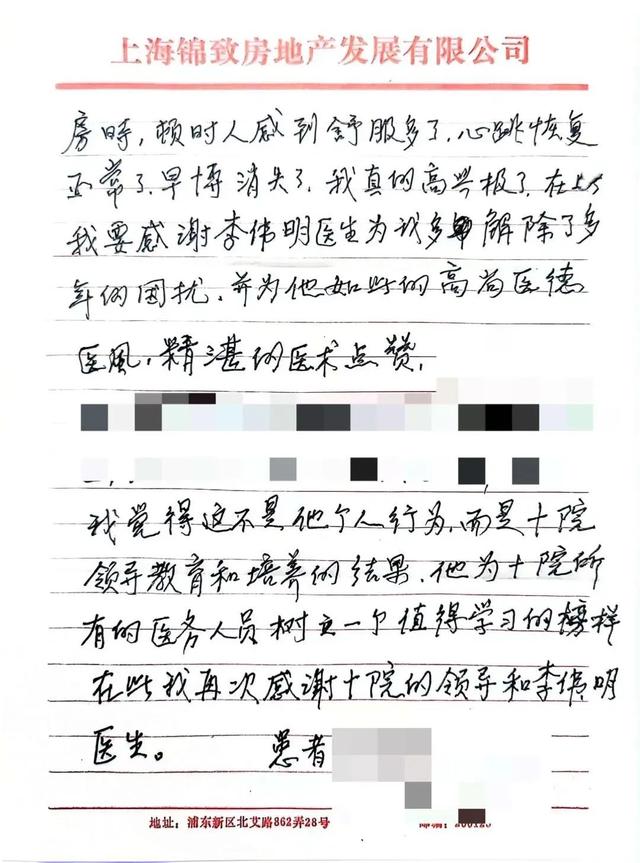 上海锦致房地产发展有限公司
房時，顿时人感到舒服多了，心跳恢复
正常了，早博消失了，我真的高兴极了，在此
我要感谢李伟明医生为我多解除了多
年的困扰、并为他如此的高尚医德
医風，精湛的医术点赞，
我觉得这不是他个人行为，而是十院
领导教育和培养的结果，他为十院所
有的医务人员树立一个值得学习的榜样
在此我再次感谢十院的领导和李偉明
医生。 患者
地址：浦东新区北艾路862弄28号